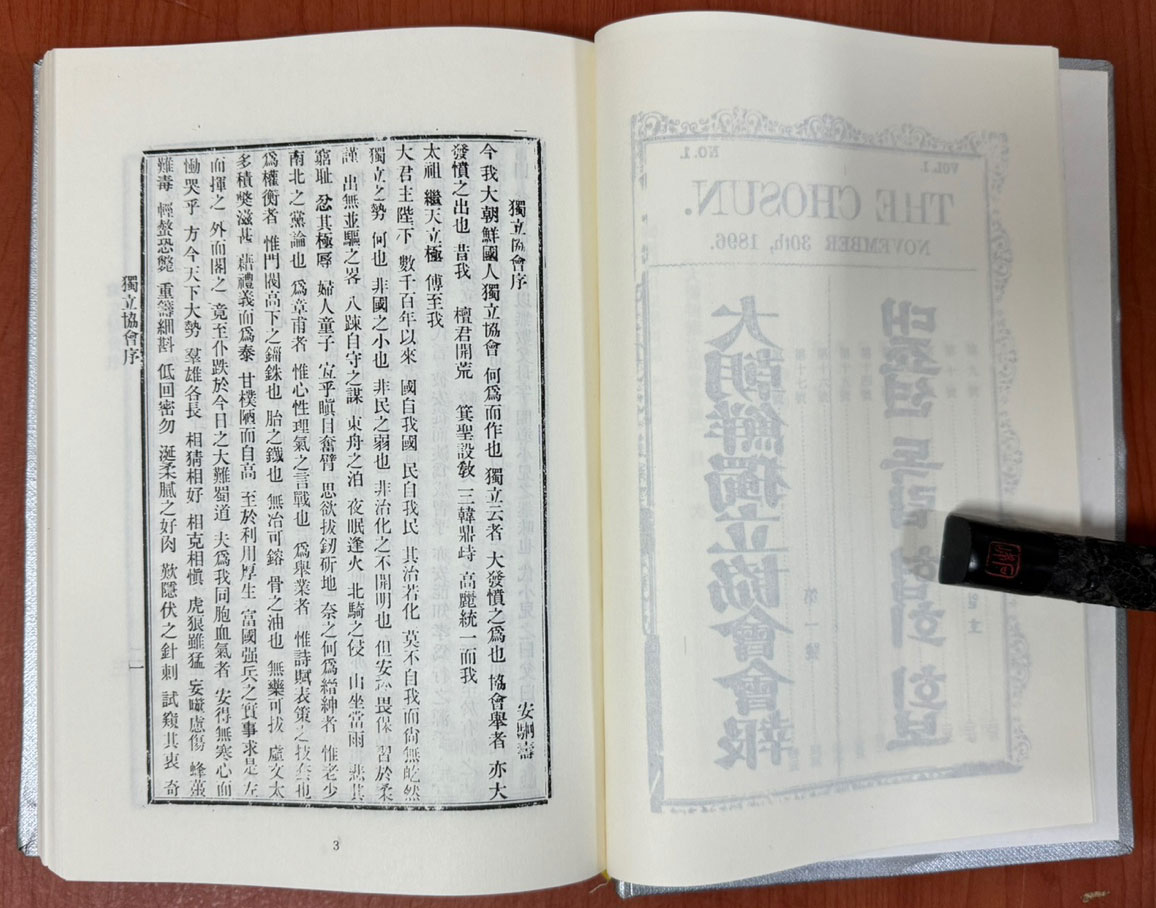 獨立協會序 安駉壽
今我大朝鮮國人獨立協會 何爲而作也 獨立云者 大發憤之爲也 協會舉者 亦大
發憤之出也 昔我 檀君開荒 箕聖設敎 三韓鼎峙 高麗統一而我
太祖 繼天立極 傳至我
大君主陛下 數千百年以來 國自我國 民自我民 其治若化 莫不自我而尙無屹然
獨立之勢 何也 非國之小也 非民之弱也 非治化之不開明也 但安於畏保 習於柔
謹 出無並驅之畧 入踈自守之謀 東舟之泊 夜眠逢火 北騎之侵 山坐當雨 悲其
窮耻 忿其極辱 婦人童子 宜乎瞋目奮臂 思欲拔釼斫地 奈之何爲縉紳者 惟老少
南北之黨論也 爲章甫者 惟心性理氣之言戰也 爲舉業者 惟詩賦表策之技
爲權衡者 惟門閥高下之錙銖也 胎之鐵也 無治可鎔 骨之油也 無藥可拔 虛文太
多積獘滋甚 藉禮義而爲泰 甘樸陋而自高 至於利用厚生 富國强兵之實事求是 左
而揮之 外而閣之 竟至仆跌於今日之大難蜀道 夫爲我同胞血氣者 安得無寒心而
慟哭乎 方今天下大勢 羣雄各長 相猜相好 相克相愼 虎狼雖猛 妄噬慮傷 蜂蠆
雖毒 輕螫恐斃 重籌細斟 低回密勿 涎柔膩之好肉 歎隱伏之針刺 試窺其衷 奇
獨立協會序
一
3
VOL.1.
NO.1.
THE CHOSUN.
NOVEMBER 30th, 1896.
대죠션독립협회회보
大朝鮮獨立協會會報
第一號